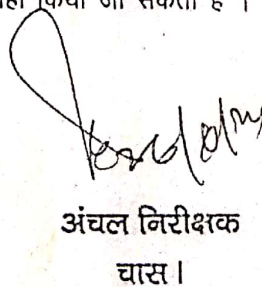 किया जा सकता है ।
अंचल निरीक्षक
चास।